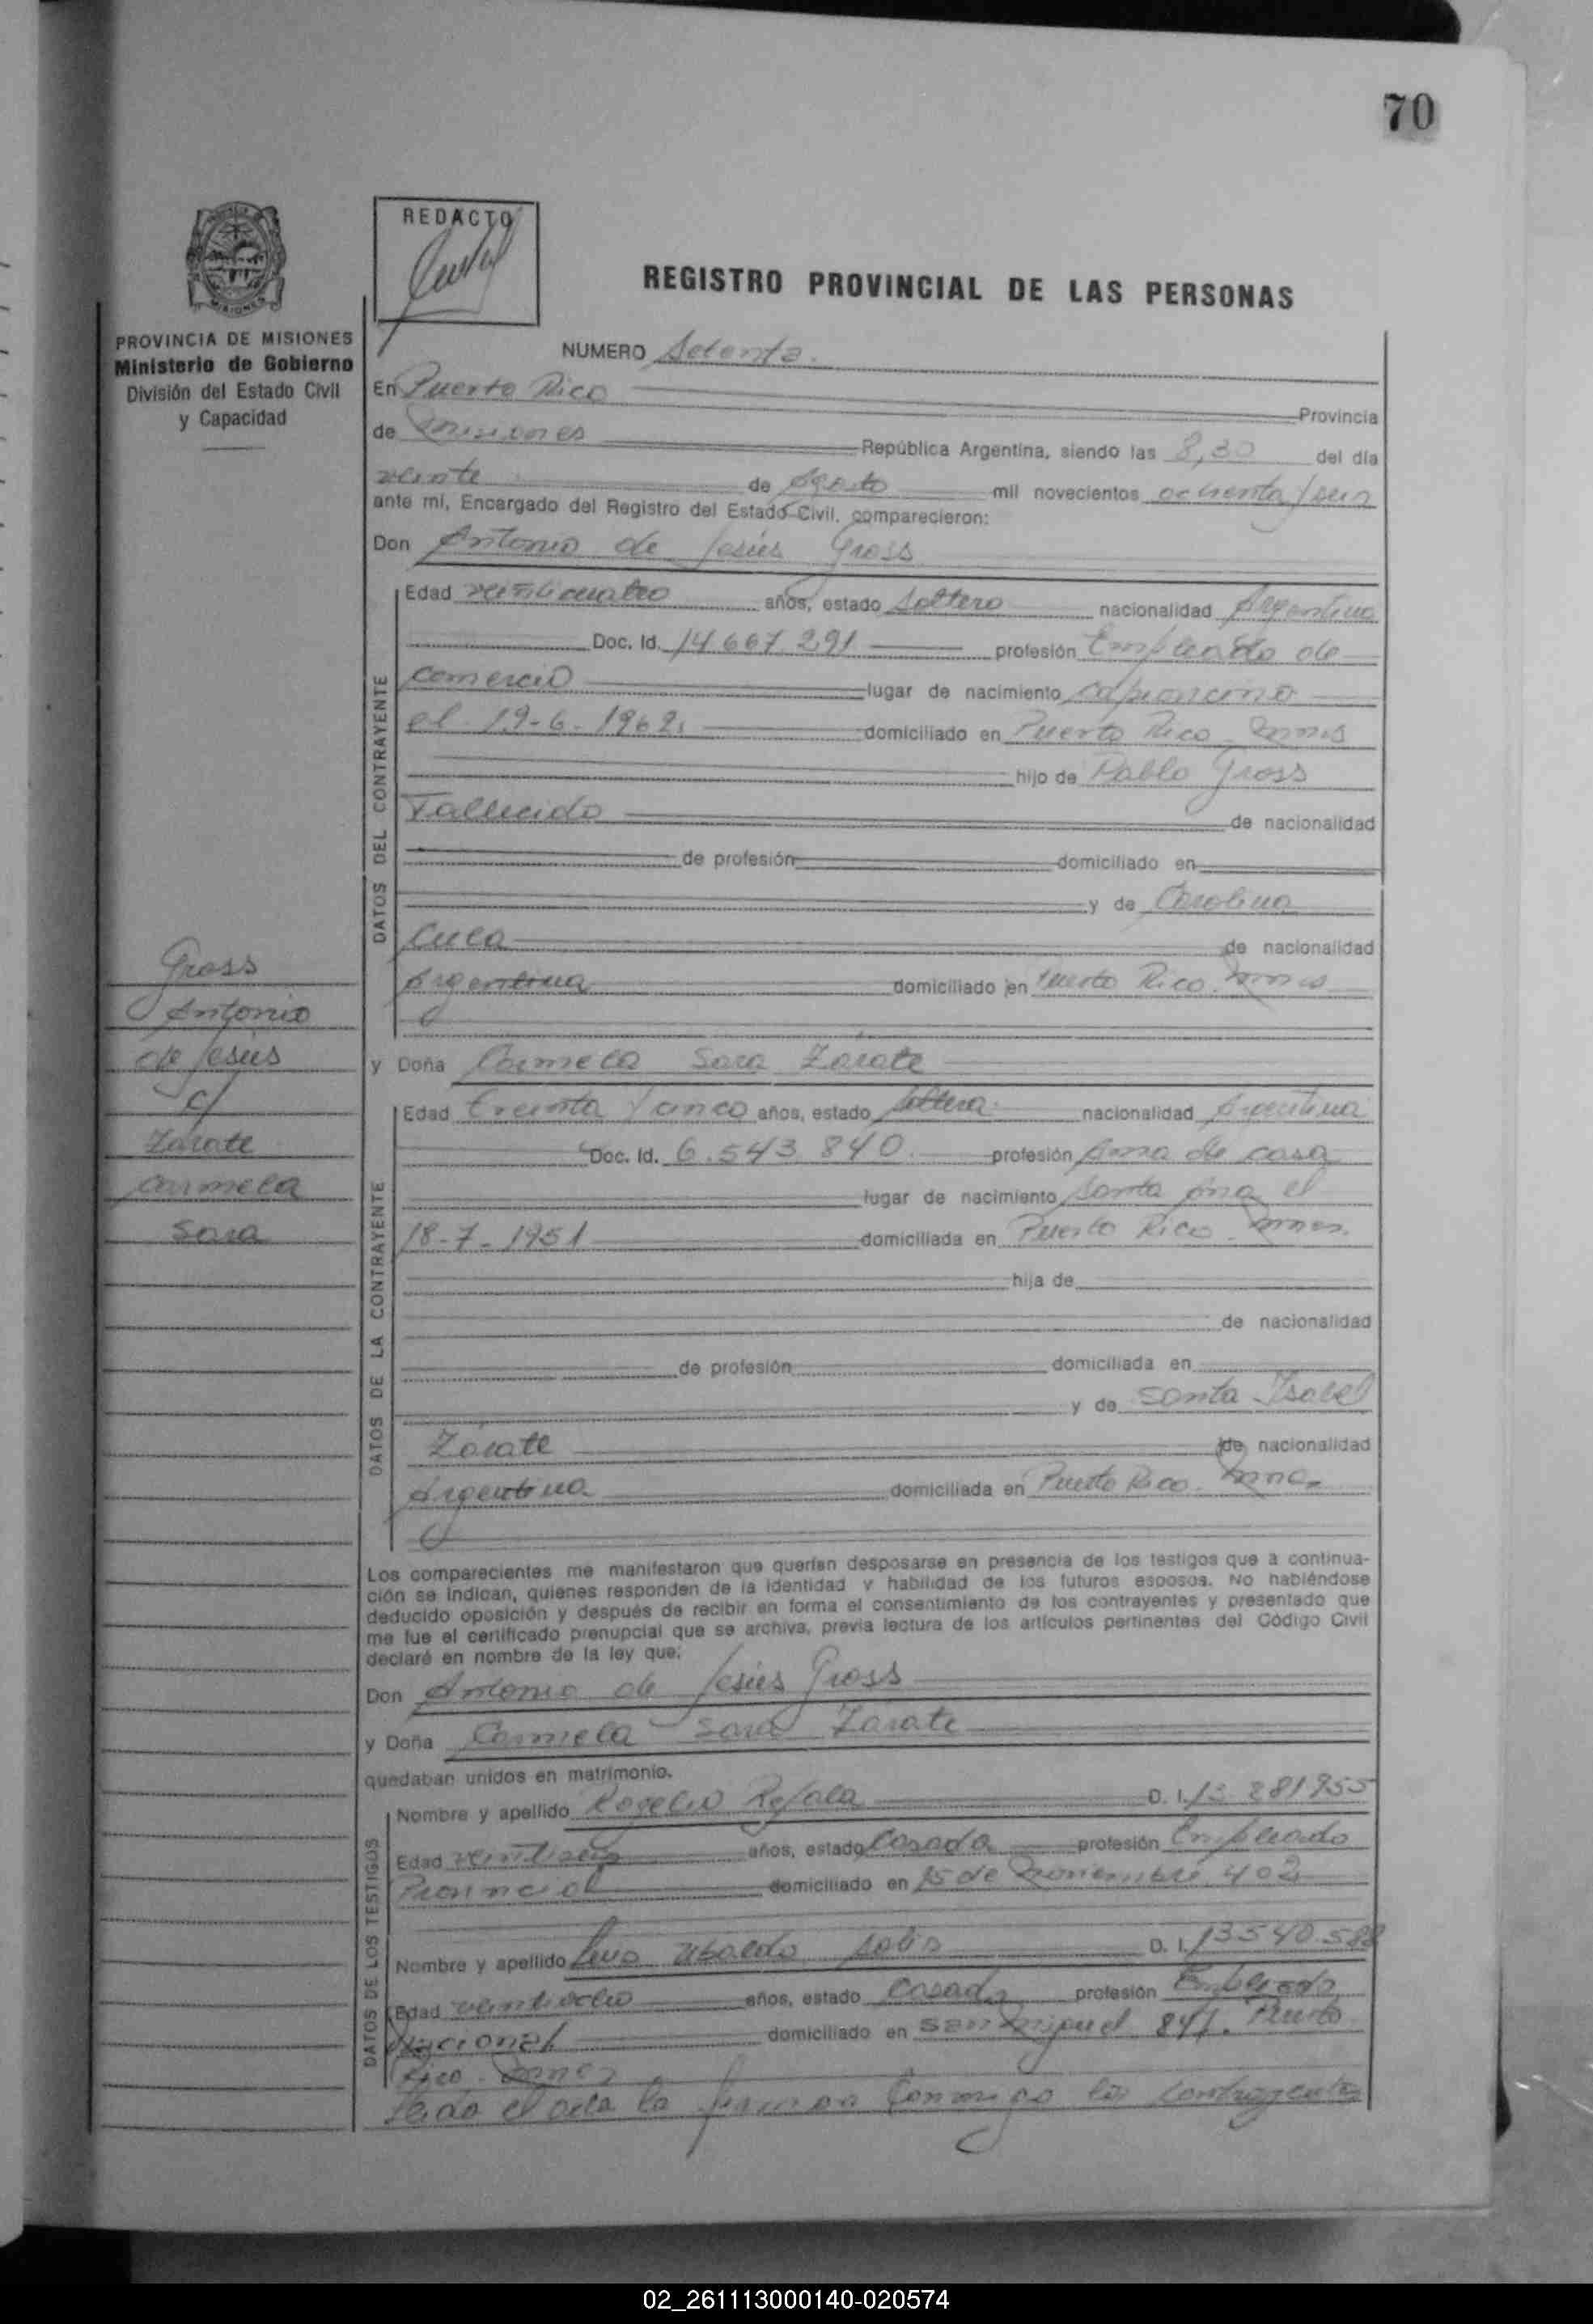 70
REDACTO
REGISTRO PROVINCIAL DE LAS PERSONAS
MISIONES
PROVINCIA DE MISIONES
Ministerio de Gobierno
División del Estado Civil
y Capacidad
NUMERO Setenta.
En Puerto Rico Provincia
de Misiones República Argentina, siendo las 8,30 del día
veinte de Agosto mil novecientos ochenta y seis
ante mí, Encargado del Registro del Estado Civil, comparecieron:
Don Antonio de Jesús Gross
DATOS DEL CONTRAYENTE
Edad veinticuatro años, estado Soltero nacionalidad Argentina
Doc. Id. 14.667.291 profesión Empleado de
comercio lugar de nacimiento
el 19-6-1962. domiciliado en Puerto Rico
hijo de Pablo Gross
Fallecido de nacionalidad
de profesión domiciliado en
y de Carolina
de nacionalidad
Argentina domiciliado en Puerto Rico
Gross
Antonio
de Jesús
c/
Zárate
Carmela
Sara
y Doña Carmela Sara Zárate
DATOS DE LA CONTRAYENTE
Edad treinta y cinco años, estado Soltera nacionalidad Argentina
Doc. Id. 6.543.840. profesión Ama de casa
lugar de nacimiento Santa Ana el
18-7-1951 domiciliada en Puerto Rico
hija de
de nacionalidad
de profesión domiciliada en
y de Santa Isabel
Zárate de nacionalidad
Argentina domiciliada en Puerto Rico
Los comparecientes me manifestaron que querían desposarse en presencia de los testigos que a continua-
ción se indican, quienes responden de la identidad y habilidad de los futuros esposos. No habiéndose
deducido oposición y después de recibir en forma el consentimiento de los contrayentes y presentado que
me fue el certificado prenupcial que se archiva, previa lectura de los artículos pertinentes del Código Civil
declaré en nombre de la ley que:
Don Antonio de Jesús Gross
y Doña Carmela Sara Zárate
quedaban unidos en matrimonio.
DATOS DE LOS TESTIGOS
Nombre y apellido Rogelio D. I.
Edad veintiseis años, estado Casado profesión Empleado
Provincial domiciliado en de Noviembre 402
Nombre y apellido Ubaldo Solis D. I. 13.540.588
Edad veintiocho años, estado Casado profesión Empleado
Nacional domiciliado en San Miguel 841. Puerto
Rico
Leida el acta la firman conmigo los contrayentes
02_261113000140-020574